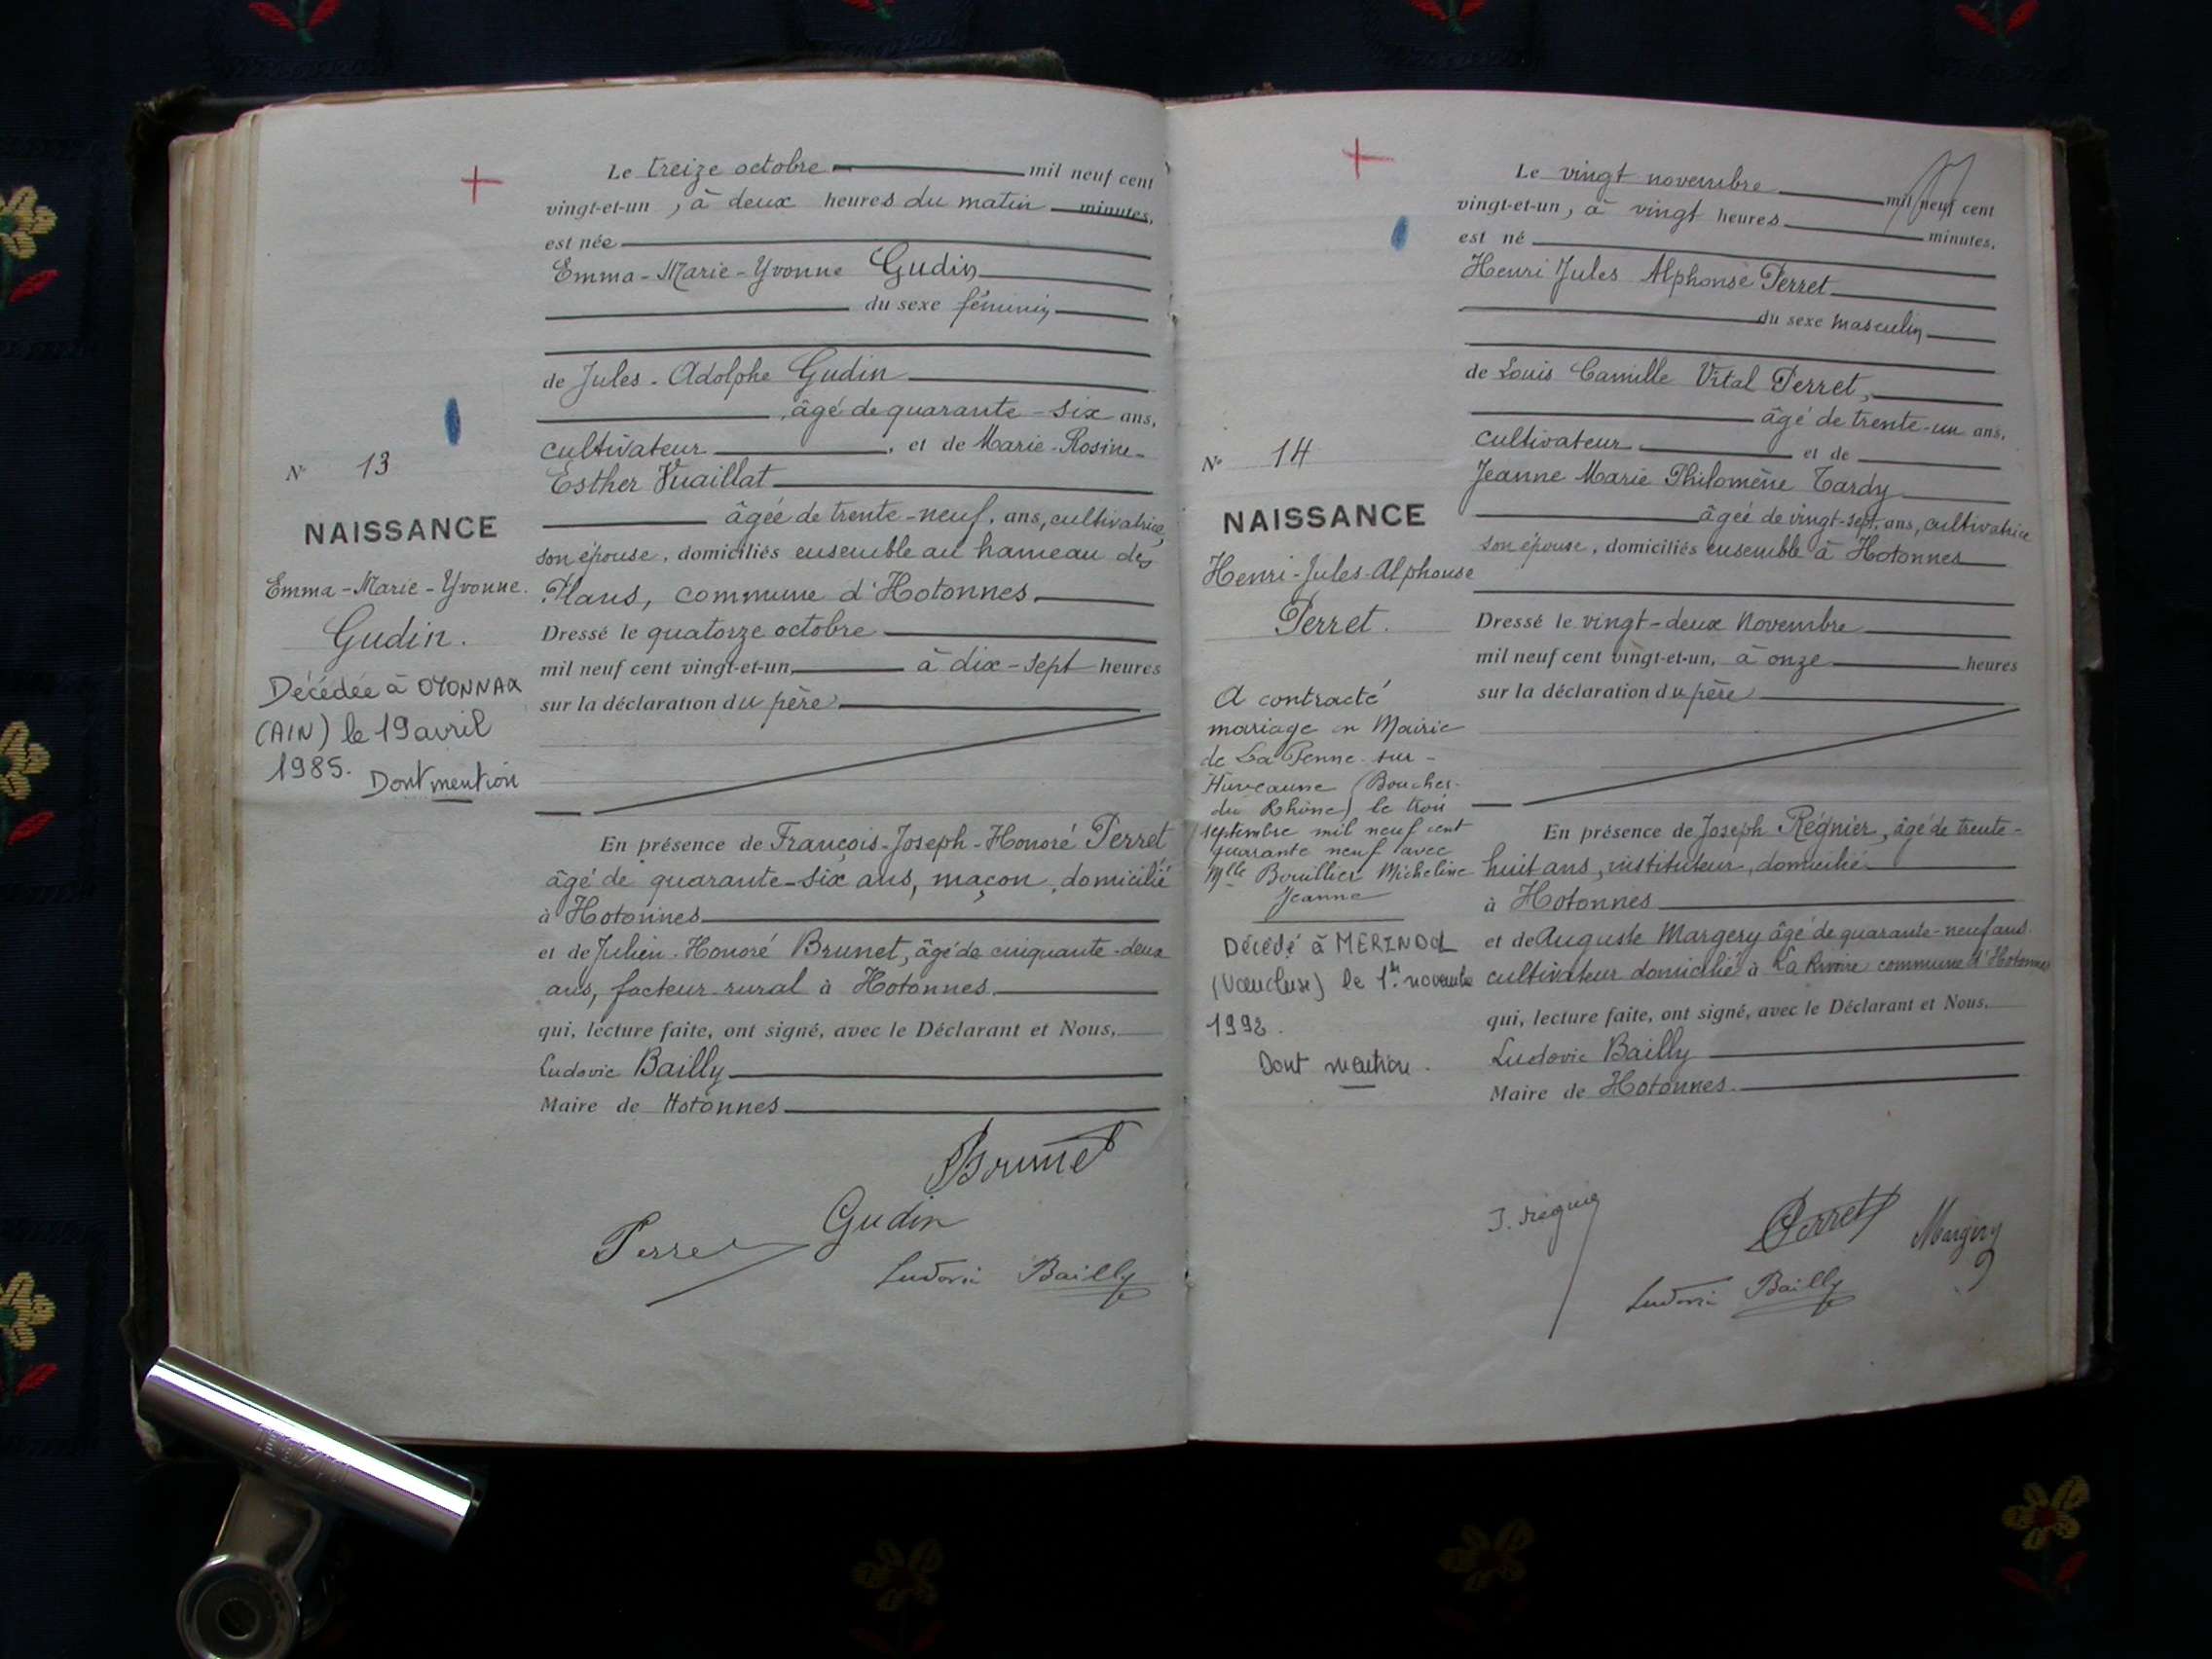 Le treize octobre mil neuf cent
vingt-et-un, à deux heures du matin minutes,
est née
Emma-Marie-Yvonne Gudin
du sexe féminin
de Jules-Adolphe Gudin
, âgé de quarante-six ans,
cultivateur, et de Marie-Rosine-
Esther Vuaillat
âgée de trente-neuf, ans, cultivatrice,
son épouse, domiciliés ensemble au hameau des
Plans, commune d'Hotonnes.
Dressé le quatorze octobre
mil neuf cent vingt-et-un, à dix-sept heures
sur la déclaration du père
En présence de François-Joseph-Honoré Perret
âgé de quarante-six ans, maçon, domicilié
à Hotonnes
et de Julien-Honoré Brunet, âgé de cinquante-deux
ans, facteur-rural à Hotonnes.
qui, lecture faite, ont signé, avec le Déclarant et Nous,
Ludovic Bailly
Maire de Hotonnes
Brunet
Gudin
Perret
Ludovic Bailly
N° 13
NAISSANCE
Emma-Marie-Yvonne.
Gudin.
Décédée à OYONNAX
(AIN) le 19 avril
1985.
Dont mention
Le vingt novembre mil neuf cent
vingt-et-un, à vingt heures minutes,
est né
Henri Jules Alphonse Perret
du sexe masculin
de Louis Camille Vital Perret,
âgé de trente-un ans,
cultivateur et de
Jeanne Marie Philomène Tardy
âgée de vingt-sept, ans, cultivatrice
son épouse, domiciliés ensemble à Hotonnes
Dressé le vingt-deux Novembre
mil neuf cent vingt-et-un, à onze heures
sur la déclaration du père
En présence de Joseph Régnier, âgé de trente-
huit ans, instituteur, domicilié
à Hotonnes
et de Auguste Margery âgé de quarante-neuf ans
cultivateur domicilié à La Rivoire commune d'Hotonnes
qui, lecture faite, ont signé, avec le Déclarant et Nous,
Ludovic Bailly
Maire de Hotonnes.
J. Régnier
Perret
Margery
Ludovic Bailly
N° 14
NAISSANCE
Henri-Jules-Alphonse
Perret.
A contracté
mariage en Mairie
de La Penne-sur-
Huveaune (Bouches-
du Rhône) le trois
septembre mil neuf cent
quarante neuf avec
Mlle Bouillier Micheline
Jeanne
Décédé à MERINDOL
(Vaucluse) le 1er novembre
Dont mention.